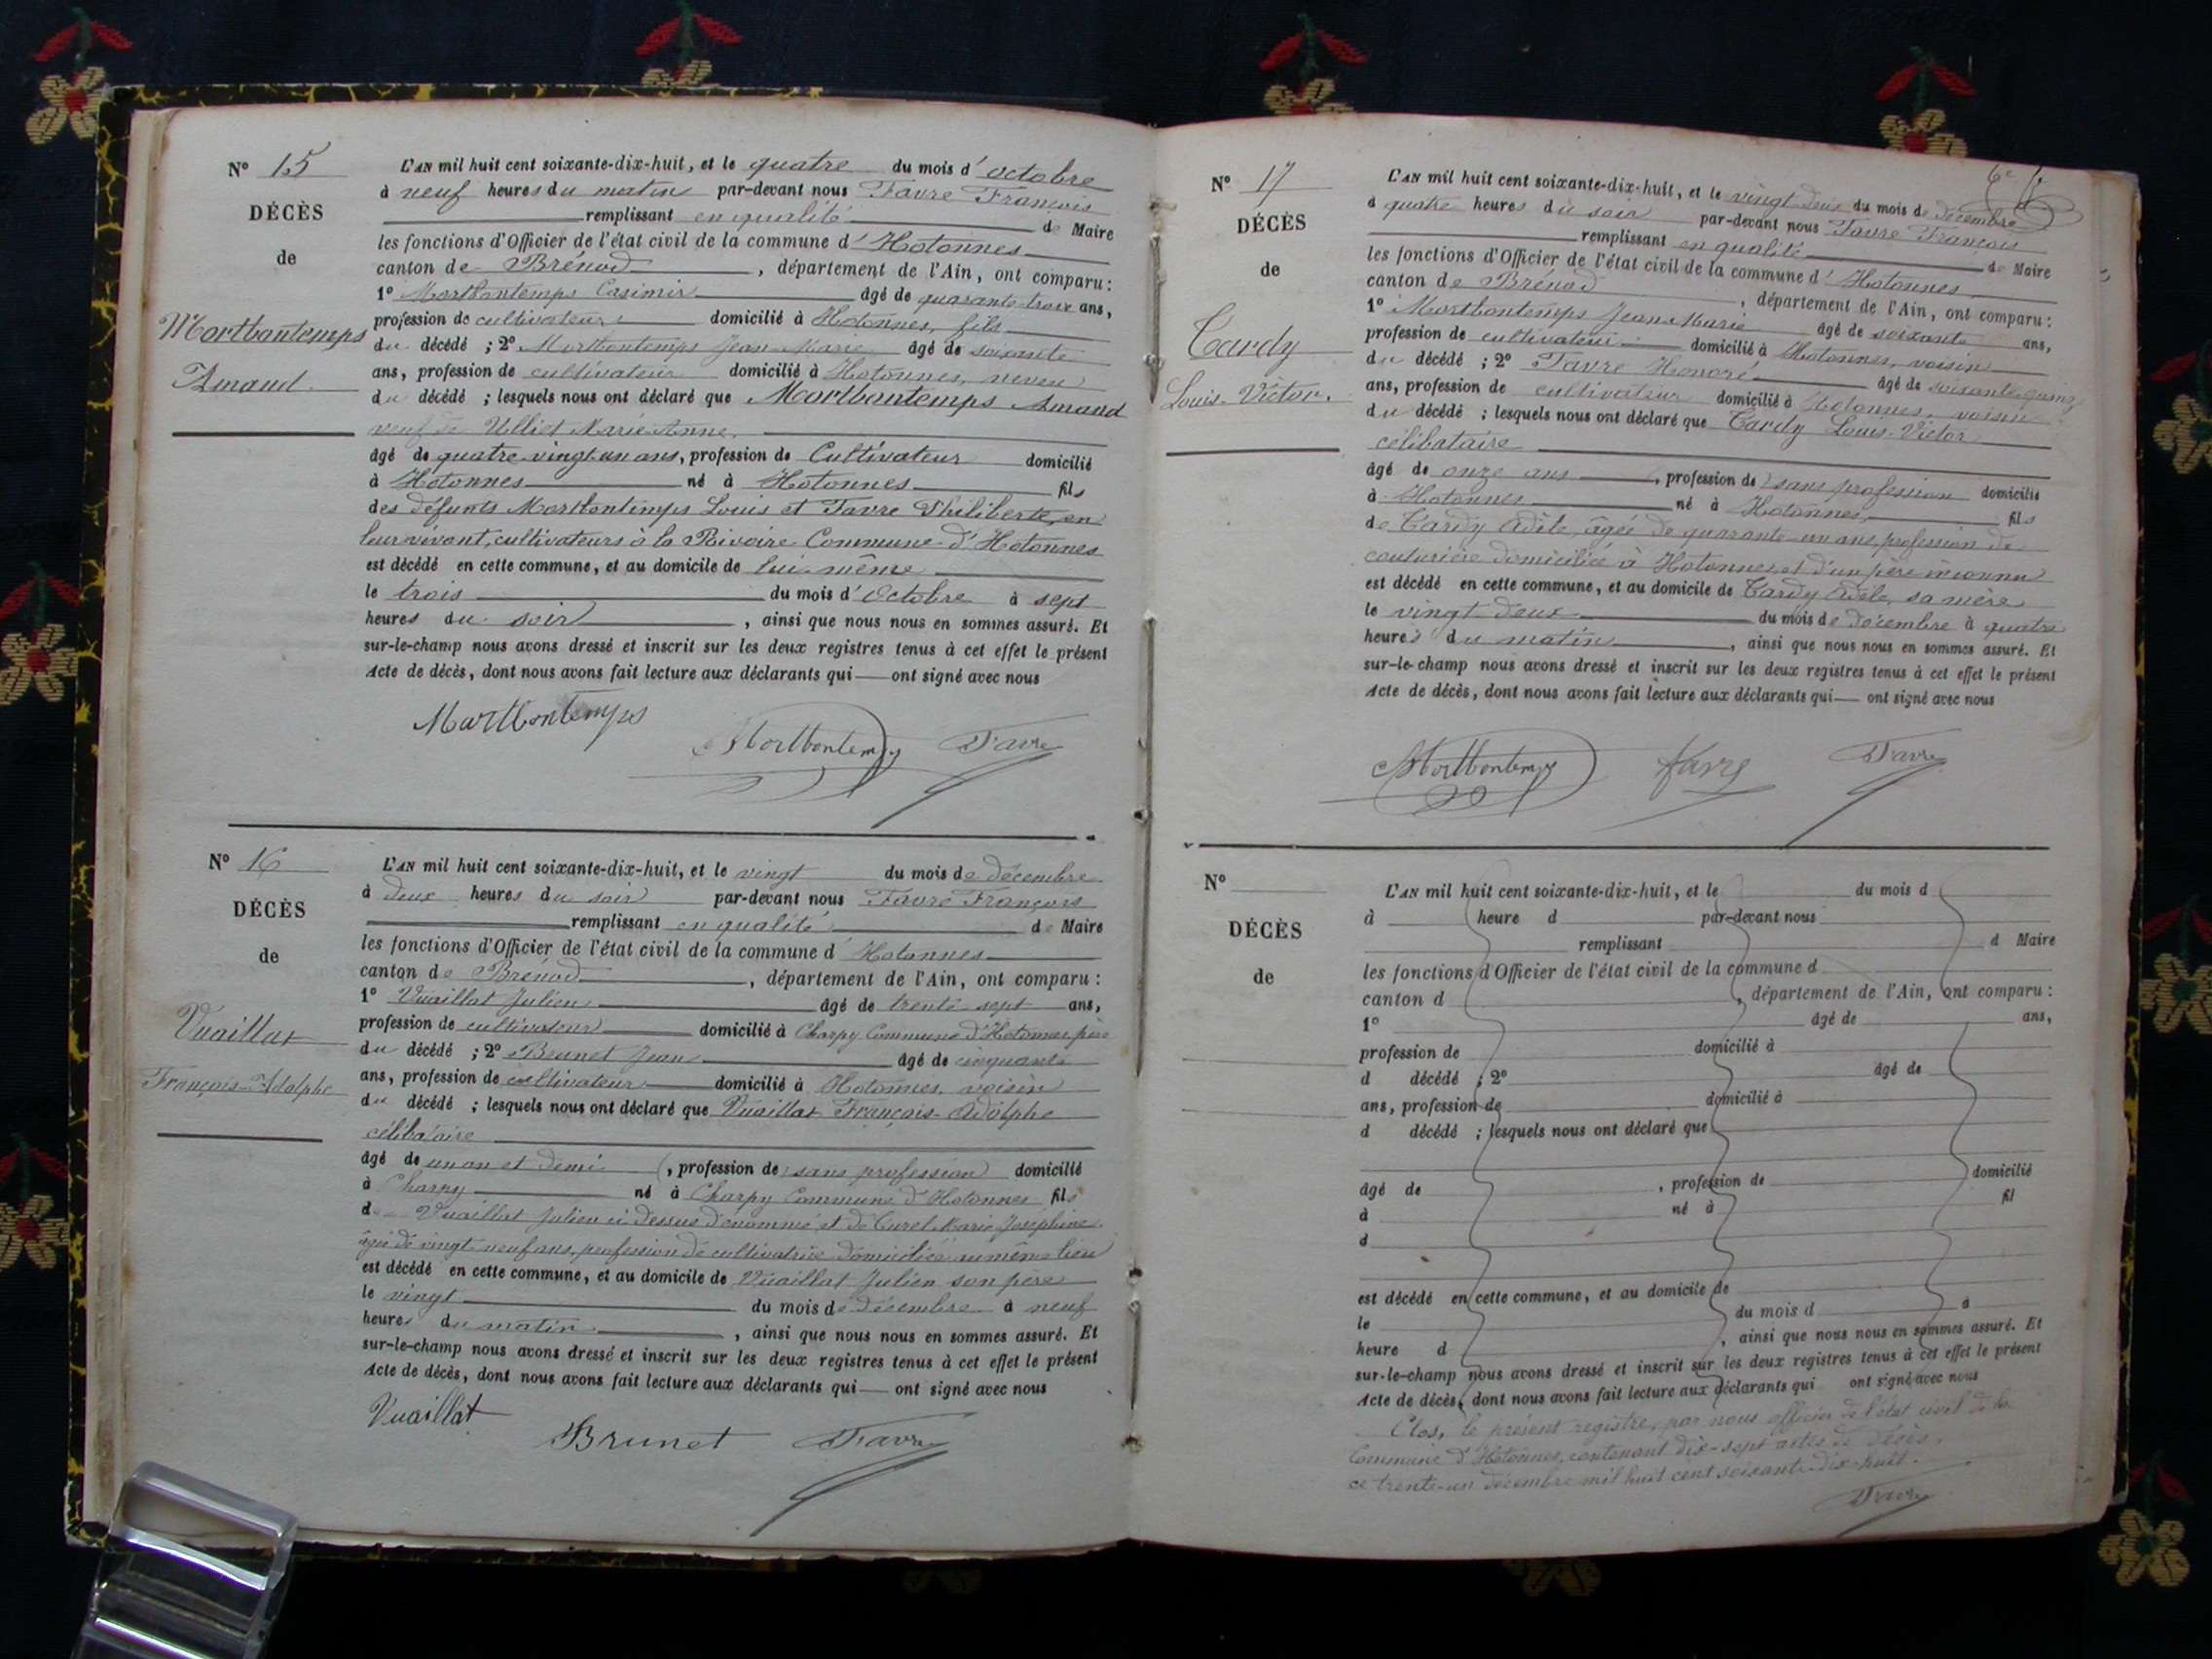 N° 15
DÉCÈS
de
Mortbontemps
Amand
L'AN mil huit cent soixante-dix-huit, et le quatre du mois d'octobre
à neuf heures du matin par-devant nous Favre François
remplissant en qualité de Maire
les fonctions d'Officier de l'état civil de la commune d'Hotonnes
canton de Brénod, département de l'Ain, ont comparu :
1° Mortbontemps Casimir âgé de quarante-trois ans,
profession de cultivateur domicilié à Hotonnes, fils
du décédé ; 2° Mortbontemps Jean-Marie âgé de soixante
ans, profession de cultivateur domicilié à Hotonnes, neveu
du décédé ; lesquels nous ont déclaré que Mortbontemps Amand
veuf de Ulliet Marie-Anne,
âgé de quatre-vingt-un ans, profession de Cultivateur domicilié
à Hotonnes né à Hotonnes fils
des défunts Mortbontemps Louis et Favre Philiberte, en
leur vivant, cultivateurs à la Rivoire Commune d'Hotonnes
est décédé en cette commune, et au domicile de lui-même
le trois du mois d'Octobre à sept
heures du soir, ainsi que nous nous en sommes assuré. Et
sur-le-champ nous avons dressé et inscrit sur les deux registres tenus à cet effet le présent
Acte de décès, dont nous avons fait lecture aux déclarants qui ont signé avec nous
Mortbontemps
Mortbontemps Favre
N° 16
DÉCÈS
de
Vuaillat
François-Adolphe
L'AN mil huit cent soixante-dix-huit, et le vingt du mois de décembre
à deux heures du soir par-devant nous Favre François
remplissant en qualité de Maire
les fonctions d'Officier de l'état civil de la commune d'Hotonnes
canton de Brénod, département de l'Ain, ont comparu :
1° Vuaillat Julien âgé de trente-sept ans,
profession de cultivateur domicilié à Charpy Commune d'Hotonnes, père
du décédé ; 2° Brunet Jean âgé de cinquante
ans, profession de cultivateur domicilié à Hotonnes, voisin
du décédé ; lesquels nous ont déclaré que Vuaillat François-Adolphe
célibataire
âgé de un an et demi, profession de sans profession domicilié
à Charpy né à Charpy Commune d'Hotonnes fils
de Vuaillat Julien ci-dessus dénommé et de Curet Marie Joséphine
âgée de vingt-neuf ans, profession de cultivatrice domiciliée au même lieu
est décédé en cette commune, et au domicile de Vuaillat Julien son père
le vingt du mois de décembre à neuf
heures du matin, ainsi que nous nous en sommes assuré. Et
sur-le-champ nous avons dressé et inscrit sur les deux registres tenus à cet effet le présent
Acte de décès, dont nous avons fait lecture aux déclarants qui ont signé avec nous
Vuaillat
Brunet Favre
N° 17
DÉCÈS
de
Tardy
Louis-Victor.
L'AN mil huit cent soixante-dix-huit, et le vingt-deux du mois de décembre
à quatre heures du soir par-devant nous Favre François
remplissant en qualité de Maire
les fonctions d'Officier de l'état civil de la commune d'Hotonnes
canton de Brénod, département de l'Ain, ont comparu :
1° Mortbontemps Jean-Marie âgé de soixante ans,
profession de cultivateur domicilié à Hotonnes, voisin
du décédé ; 2° Favre Honoré âgé de soixante-quinze
ans, profession de cultivateur domicilié à Hotonnes, voisin
du décédé ; lesquels nous ont déclaré que Tardy Louis-Victor
célibataire
âgé de onze ans, profession de sans profession domicilié
à Hotonnes né à Hotonnes, fils
de Tardy Adèle, âgée de quarante-un ans profession de
couturière domiciliée à Hotonnes et d'un père inconnu
est décédé en cette commune, et au domicile de Tardy Adèle, sa mère
le vingt-deux du mois de décembre à quatre
heures du matin, ainsi que nous nous en sommes assuré. Et
sur-le-champ nous avons dressé et inscrit sur les deux registres tenus à cet effet le présent
Acte de décès, dont nous avons fait lecture aux déclarants qui ont signé avec nous
Mortbontemps Favre Favre
N°
DÉCÈS
de
L'AN mil huit cent soixante-dix-huit, et le du mois d
à heure d par-devant nous
remplissant d Maire
les fonctions d'Officier de l'état civil de la commune d
canton d , département de l'Ain, ont comparu :
1° âgé de ans,
profession de domicilié à
d décédé ; 2° âgé de
ans, profession de domicilié à
d décédé ; lesquels nous ont déclaré que
âgé de , profession de domicilié
à né à fil
d
est décédé en cette commune, et au domicile de
le du mois d à
heure d , ainsi que nous nous en sommes assuré. Et
sur-le-champ nous avons dressé et inscrit sur les deux registres tenus à cet effet le présent
Acte de décès, dont nous avons fait lecture aux déclarants qui ont signé avec nous
Clos, le présent registre, par nous officier de l'état civil de la
Commune d'Hotonnes, contenant dix-sept actes de décès,
ce trente-un décembre mil huit cent soixante-dix-huit.
Favre